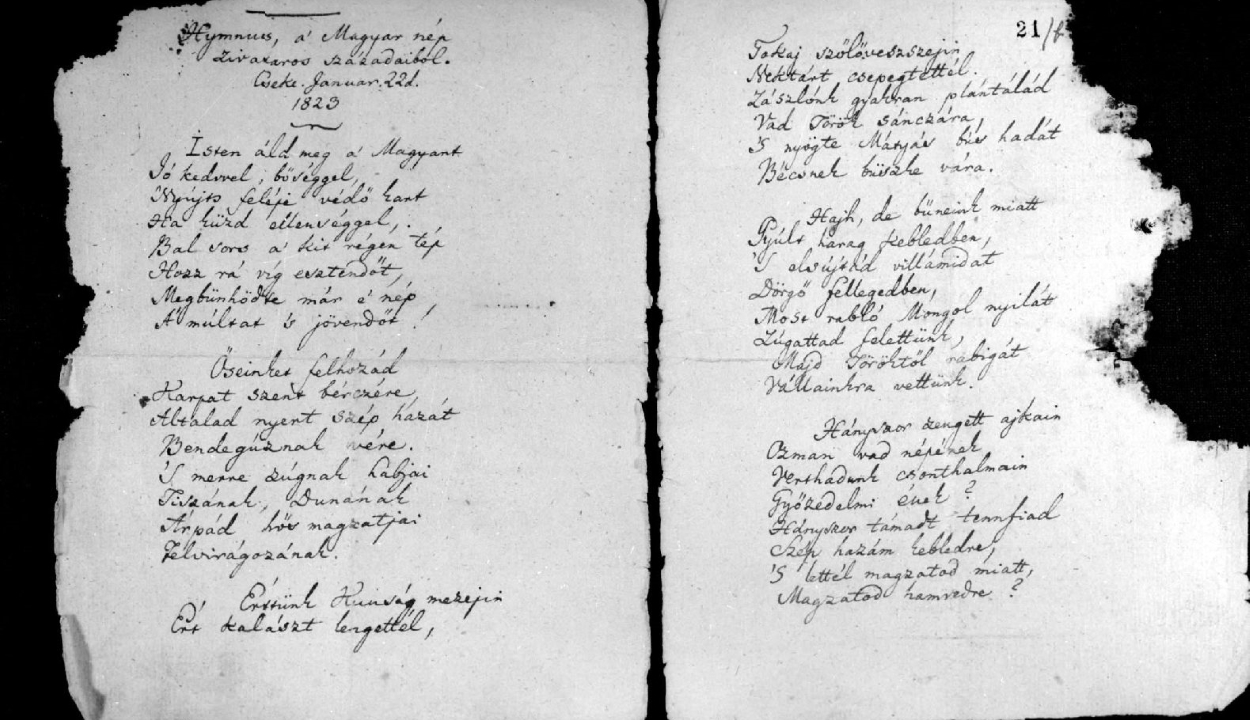 Hymnus, a' Magyar nép
zivataros századaiból.
Cseke. Januar. 22d.
1823
Isten áld meg a' Magyart
Jó kedvvel, bőséggel,
Nyújts feléje védő kart
Ha küzd ellenséggel,
Bal sors a' kit régen tép
Hozz rá víg esztendőt,
Megbünhődte már e' nép
A' múltat 's jövendőt!
Őseinket felhozád
Kárpát szent bérczére,
Általad nyert szép hazát
Bendegúznak vére.
'S merre zúgnak habjai
Tiszának, Dunának
Árpád hős magzatjai
Felvirágozának.
Értünk Kunság mezejin
Ért kalászt lengettél,
21/b
Tokaj szőlővesszejin
Nektárt csepegtettél.
Zászlónk gyakran plántálád
Vad Török sánczára,
'S nyögte Mátyás bús hadát
Bécsnek büszke vára.
Hajh, de bűneink miatt
Gyúlt harag kebledben,
'S elsújtád villámidat
Dörgő fellegedben,
Most rabló Mongol nyilát
Zúgattad felettünk,
Majd Töröktől rabigát
Vállainkra vettünk.
Hányszor zengett ajkain
Ozman vad népének
Vert hadunk csonthalmain
Győzedelmi ének?
Hányszor támadt tennfiad
Szép hazám kebledre,
'S lettél magzatod miatt,
Magzatod hamvedre?